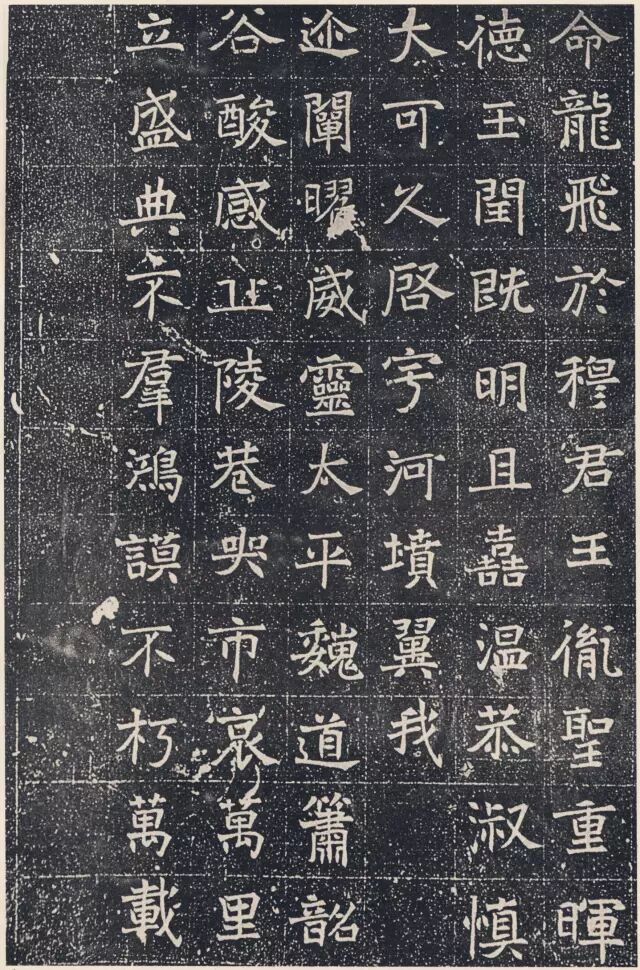 命龍飛於穆君王胤聖重暉
德玉閏既明且嚞温恭淑慎
大可久啓宇河墳翼我
迩闡曜威靈太平魏道簫韶
谷酸感丠陵巷哭市哀萬里
立盛典不羣鴻謨不朽萬載